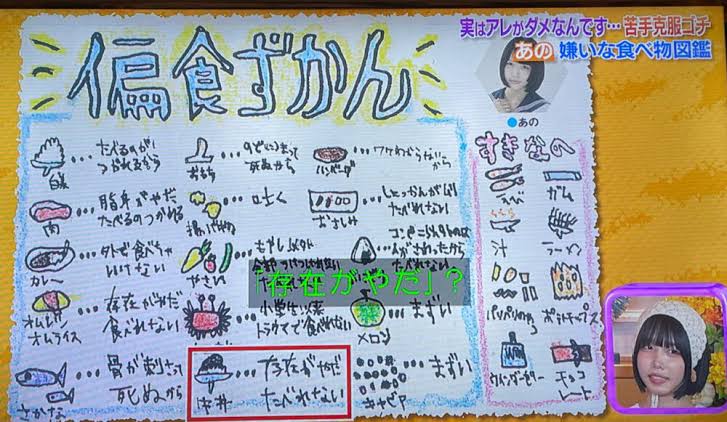 実はアレがダメなんです…苦手克服ゴチ
あの 嫌いな食べ物図鑑
偏食ずかん
あの
白米
…たべるのが
つかれるから
おもち
…のどにつまって
死ぬから
ハンバーグ
…ワケわからないから
すきなの
肉
…脂身がやだ
たべるのつかれる
…吐く
おさしみ
…しょっかんがムリ
たべれない
えび
ガム
カレー
…外で食べちゃ
いけない
やさい
…もやし以外
おにぎり
たべれない
汁
ラーメン
「存在がやだ」?
オムレツ
オムライス
…存在がやだ
食べれない
トラウマで食べれない
メロン
…まずい
ポテトチップス
さかな
…骨が刺さって
死ぬから
…存在がやだ
たべれない
キャビア
…まずい
チョコ
レート